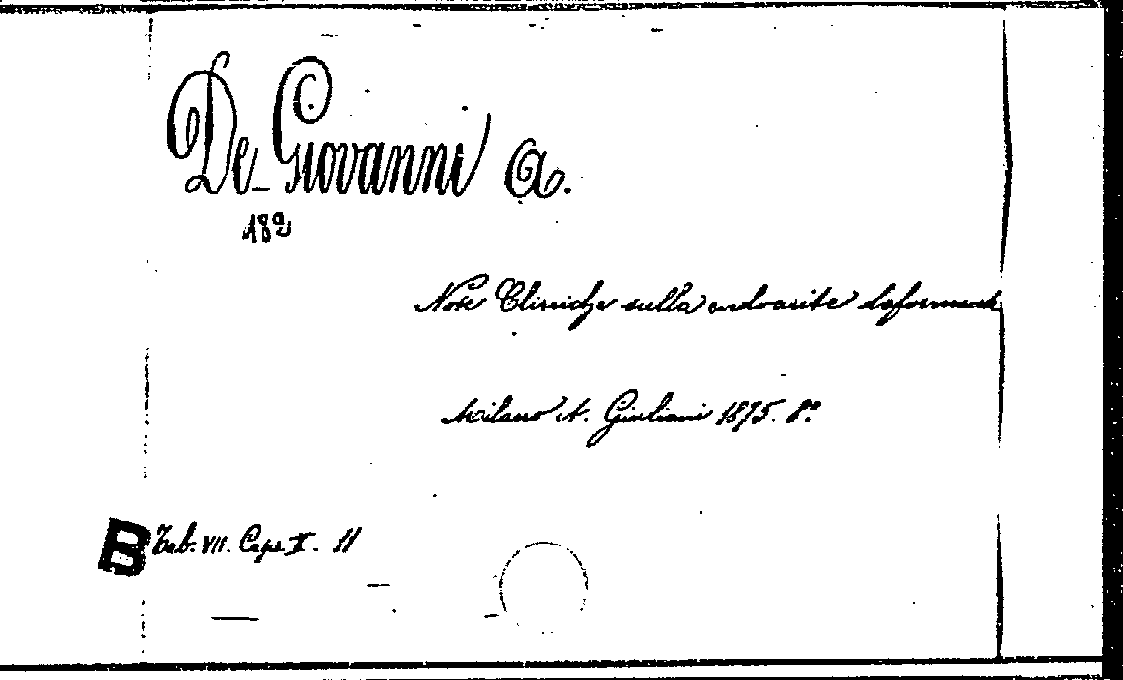 De Giovanni A.
182
Note Cliniche sulla endoarite deformant
Milano A. Giuliani 1875. 8º
B Tab. VII. Caps. X. 11